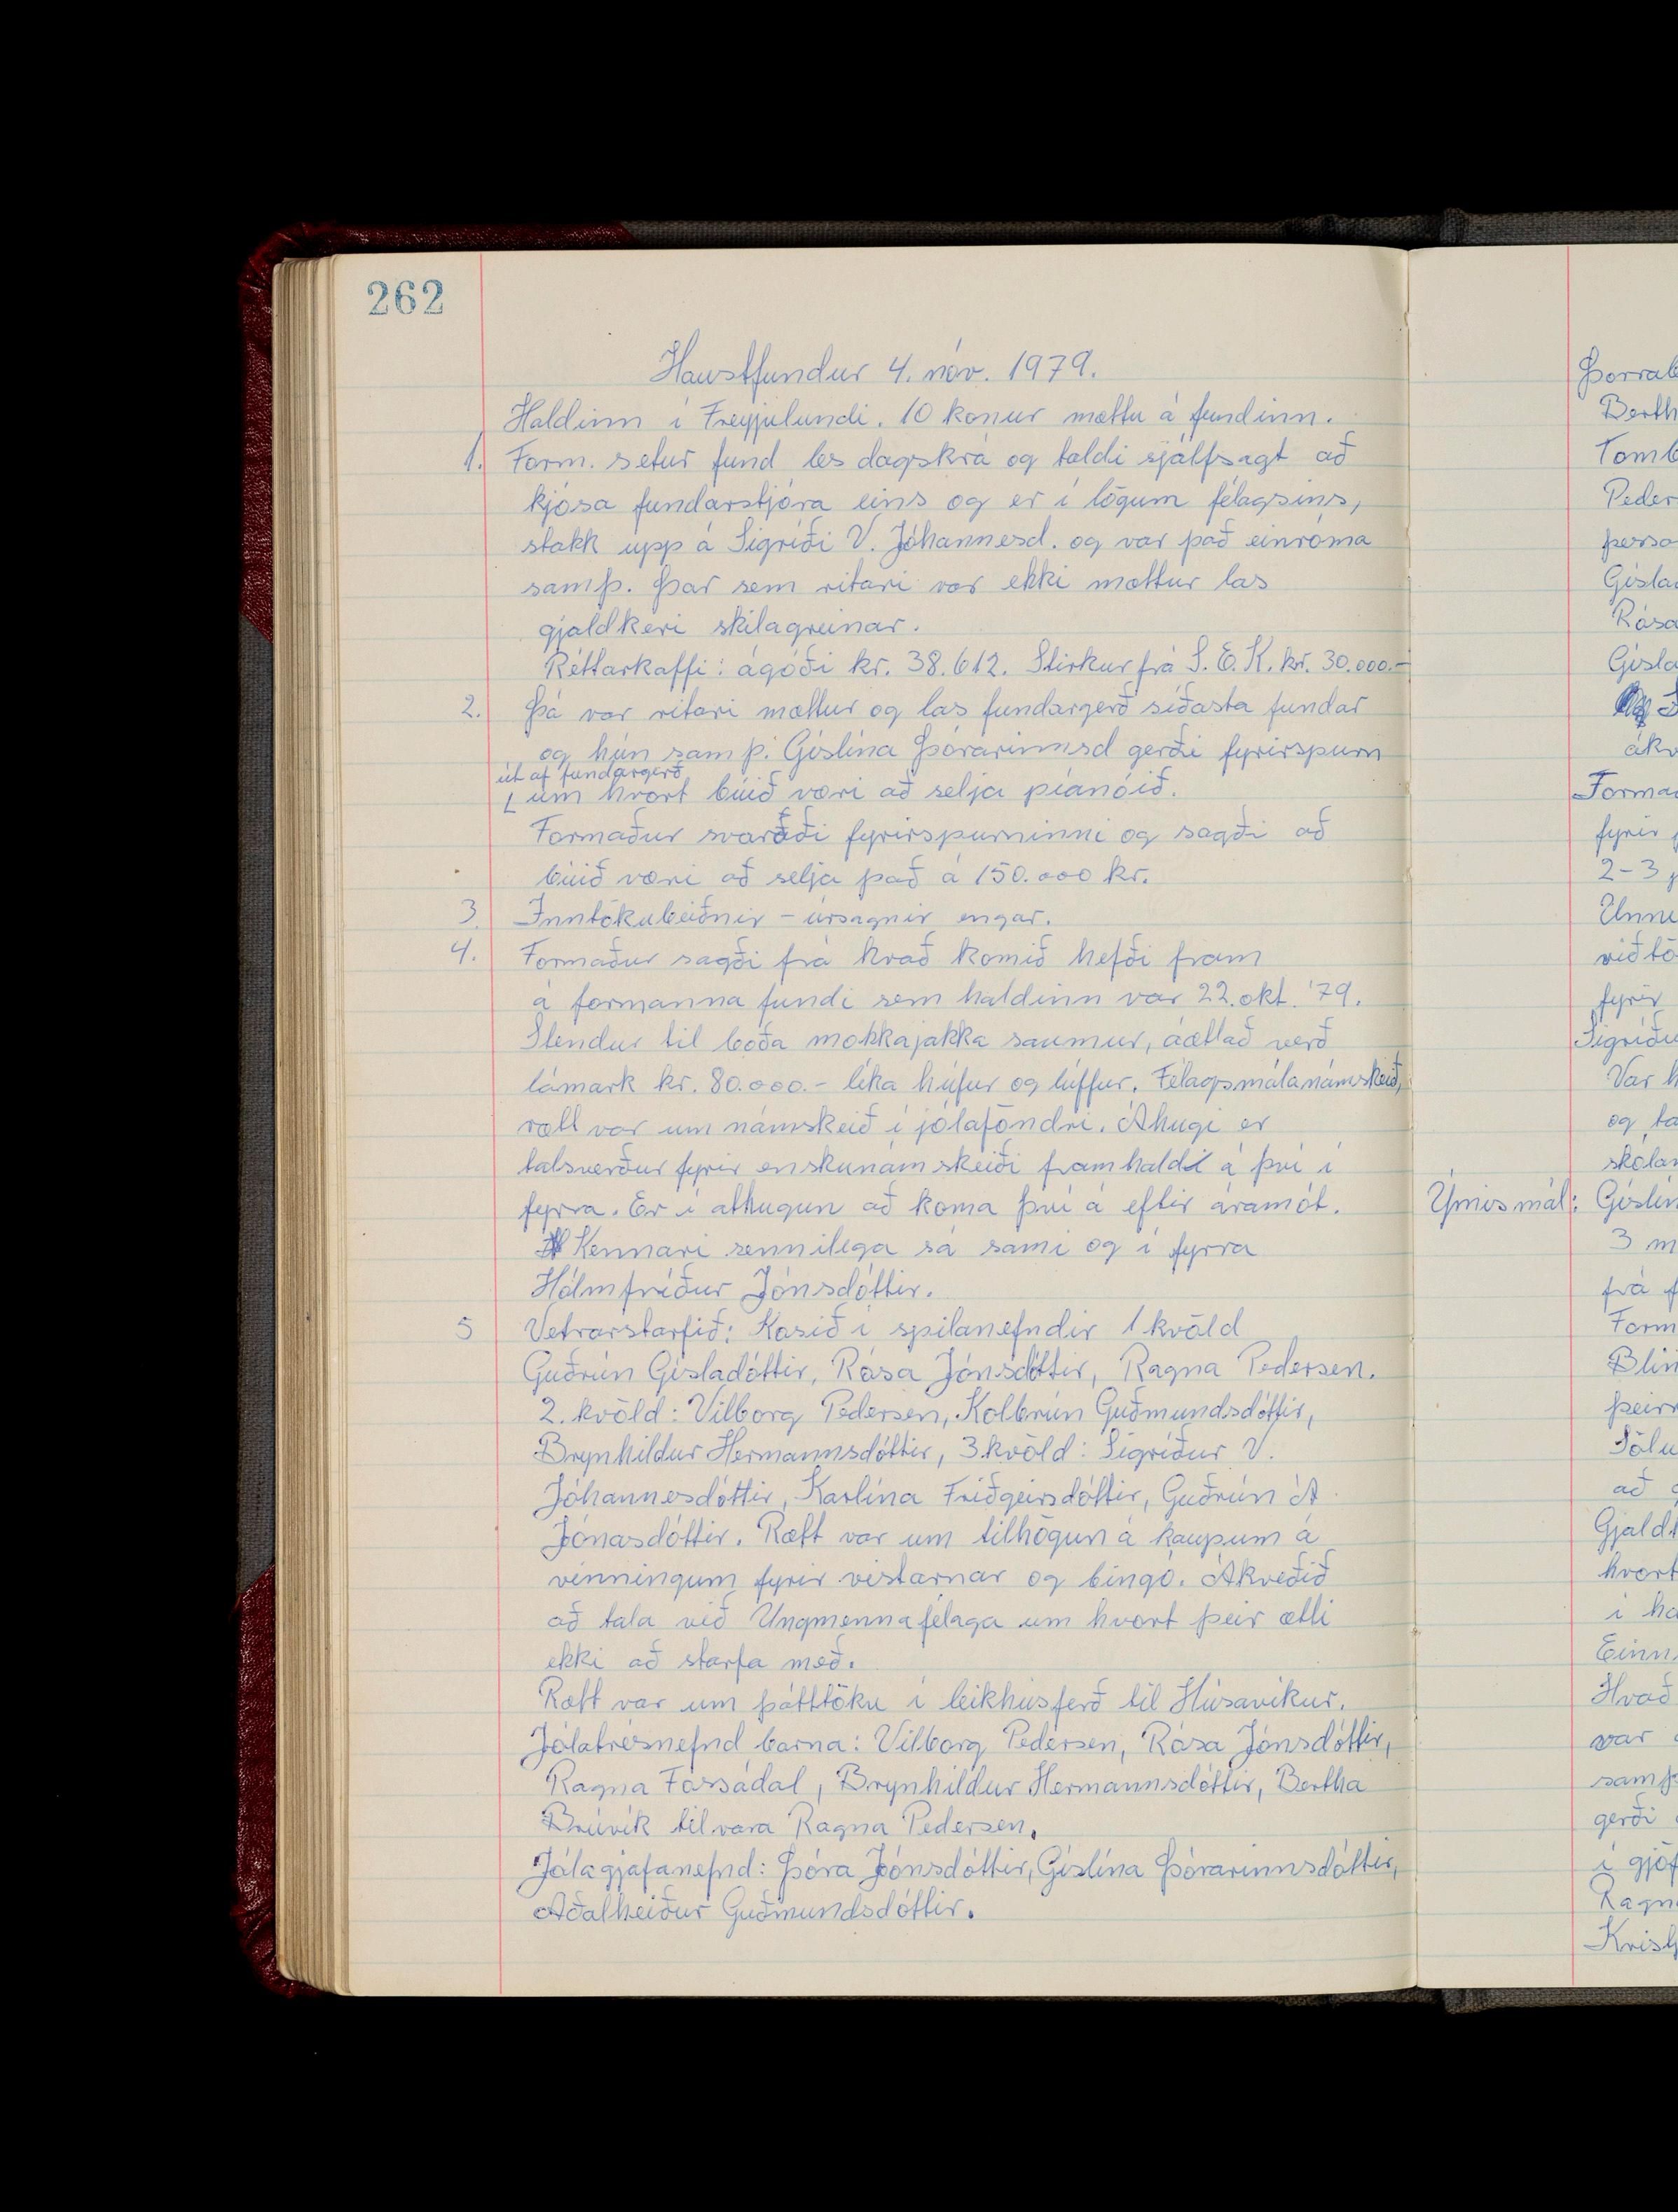 262
Haustfundur 4. nóv. 1979.
Haldinn i Freyjulundi. 10 konur mættu á fundinn.
1. Form. setur fund les dagskrá og taldi sjálfsagt að
kjósa fundarstjóra eins og er i lögum félagsins,
stakk upp á Sigríði V. Jóhannesd. og var það einróma
samþ. Þar sem ritari var ekki mættur las
gjaldkeri skilagreinar.
Réttarkaffi: ágóði kr. 38.612. Stirkur frá S. E. K. kr. 30.000.-
2. Þá var ritari mættur og las fundargerð síðasta fundar
og hún samþ. Gislína Þórarinnsd gerði fyrirspurn
út af fundargerð
um hvort búið væri að selja píanóið.
Formaður svaraði fyrirspurninni og sagði að
búið væri að selja það á 150.000 kr.
3. Inntökubeiðnir - úrsagnir engar.
4. Formaður sagði frá hvað komið hefði fram
á formanna fundi sem haldinn var 22. okt. '79.
Stendur til boða mokkajakka saumur, áætlað verð
lámark kr. 80.000.- líka húfur og lúffur. Félagsmálanámskeið,
rætt var um námskeið í jólaföndri. Áhugi er
talsverður fyrir enskunámskeiði framhaldi á því í
fyrra. Er í athugun að koma því á eftir áramót.
Kennari sennilega sá sami og i fyrra
Hólmfríður Jónsdóttir.
5 Vetrarstarfið: Kosið í spilanefndir 1 kvöld
Guðrún Gísladóttir, Rósa Jónsdóttir, Ragna Pedersen.
2. kvöld: Vilborg Pedersen, Kolbrún Guðmundsdóttir,
Brynhildur Hermannsdóttir, 3. kvöld: Sigríður V.
Jóhannesdóttir, Karlína Friðgeirsdóttir, Guðrún A
Jónasdóttir. Rætt var um tilhögun á kaupum á
venningum fyrir vistarnar og bingó. Ákveðið
að tala við Ungmennafélaga um hvort þeir ætli
ekki að starfa með.
Rætt var um þátttöku í leikhúsferð til Húsavíkur.
Jólatrésnefnd barna: Vilborg Pedersen, Rósa Jónsdóttir,
Ragna Fossádal, Brynhildur Hermannsdóttir, Bertha
Brúvík til vara Ragna Pedersen.
Jólagjafanefnd: Þóra Jónsdóttir, Gislína Þórarinnsdóttir,
Aðalheiður Guðmundsdóttir.
Þorrab
Berth
Tomb
Peder
perso
Gísla
Rósa
Gísla
ákv
Forma
fyrir
2-3
Unn
viðtö
fyrir
Sigríðu
Var h
og ta
skólan
Ýmis mál: Gíslín
3 m
frá f
Form
Blin
þeirr
Sölu
að
Gjaldk
hvort
i ha
Einn
Hvað
var
samþ
gerði
i gjöf
Ragn
Krist